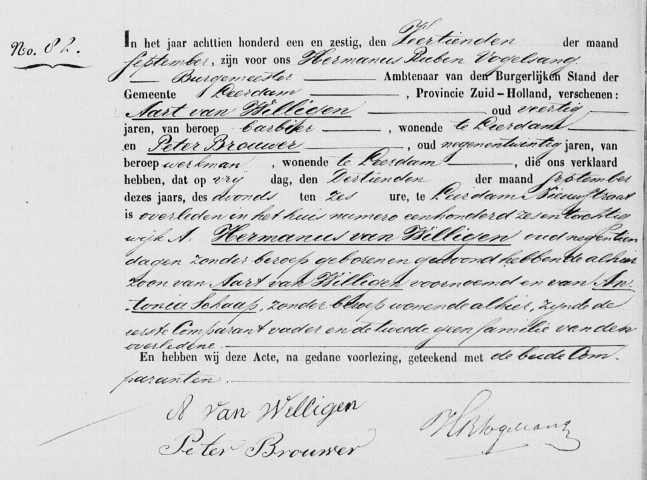 No. 82.
In het jaar achttien honderd een en zestig, den Veertienden der maand
September, zijn voor ons Hermanus Ruben Vogelsang
Burgemeester Ambtenaar van den Burgerlijken Stand der
Gemeente Leerdam, Provincie Zuid-Holland, verschenen:
Aart van Willigen oud veertig
jaren, van beroep barbier, wonende te Leerdam
en Peter Brouwer, oud negenentwintig jaren, van
beroep werkman, wonende te Leerdam, die ons verklaard
hebben, dat op vrij dag, den Dertienden der maand September
dezes jaars, des avonds ten zes ure, te Leerdam Nieuwstraat
is overleden in het huis numero eenhonderd zes en tachtig
wijk A. Hermanus van Willigen oud negentien
dagen zonder beroep geboren en gewoond hebbende alhier
zoon van Aart van Willigen voornoemd en van An-
tonia Schaap, zonder beroep wonende alhier, zijnde de
eerste Comparant vader en de tweede geen familie van den
overledene.
En hebben wij deze Acte, na gedane voorlezing, geteekend met de beide Com-
paranten.
A van Welligen
Peter Brouwer
HRVogelsang